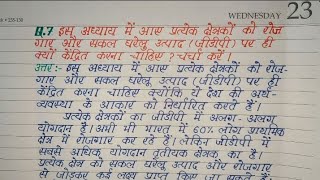 WEDNESDAY 23
Q.7 इस अध्याय में आए प्रत्येक क्षेत्रकों को रोज
गार और सकल घरेलू उत्पाद (जीडीपी) पर ही
क्यों केंद्रित करना चाहिए ? चर्चा करें।
उत्तर: इस अध्याय में आए प्रत्येक क्षेत्रकों को रोज-
गार और सकल घरेलू उत्पाद (जीडीपी) पर ही
केंद्रित करना चाहिए क्योंकि ये देश की अर्थ-
व्यवस्था के आकार को निर्धारित करते हैं।
प्रत्येक क्षेत्रकों का जीडीपी में अलग-अलग
योगदान है। अभी भी भारत में 60% लोग प्राथमिक
क्षेत्र में रोजगार कर रहे हैं। लेकिन जीडीपी में
सबसे अधिक योगदान तृतीयक क्षेत्रक का है।
प्रत्येक क्षेत्र को सकल घरेलू उत्पाद और रोजगार
से जोड़कर कई लक्ष्य प्राप्त किए जा सकते हैं।